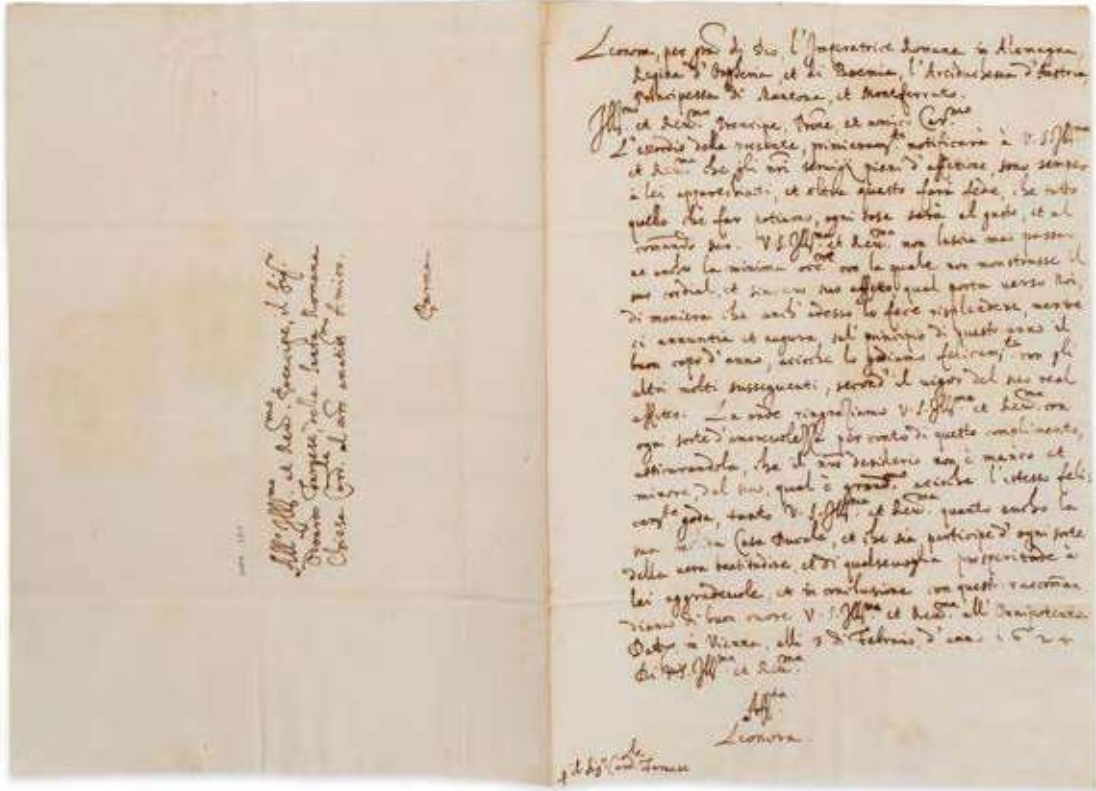 All' Ill.mo et Rev.mo Prencipe, il Sig.r
Farnese della Santa Romana
Chiesa Card.le al nostro Amico.
Parma
Leonora, per gra di Dio, l'Imperatrice Romana in Alemagna,
Regina d'Ongheria, et di Boemia, l'Arciduchessa d'Austria
Principessa di Mantova, et Monferrato.
Ill.mo et Rev.mo Prencipe, et amico Car.mo
L'essordio della presente, notificarà à V.S. Ill.ma
et Rev.ma che gli nri pieni d'affetione, sono sempre
à lei apparecchiati, et oltra questo farà fede, che tutto
quello che far potiamo, ogni cosa sarà al gusto, et al
comando suo. V.S. Ill.ma et Rev.ma non lascia mai passa-
re la minima con la quale non monstrasse il
suo cordial, et sincero suo affetto qual porta verso Noi,
di maniera che anch' adesso lo fece risplendere, mentre
ci annuntia et augura, sul principio di questo anno il
buon capo d'anno, acioche lo godiamo felicem.te con gli
altri molti susseguenti, second' il vigor del suo real
affetto. La onde ringraziamo V.S. Ill.ma et Rev.ma con
ogni sorte d'amorevolezza per conto di questo complimento,
assicurandola, che il nro desiderio non è manco et
minore, del suo, qual è acioche l'istesso feli-
cem.te goda, tanto V.S. Ill.ma et Rev.ma quanto ancho la
sua Casa Ducale, et che sia participe d'ogni sorte
della vera beatitudine, et di qualsevoglia prosperitade à
lei aggradevole, et in conclusione con questo raccoman
diamo di buon cuore V.S. Ill.ma et Rev.ma all' Onnipotente
in Vienna, alli 3 di Febraio d'anno 1624
Di V.S. Ill.ma et Rev.ma
Aff.ma
Leonora.
Al Sig.r Card.le Farnese